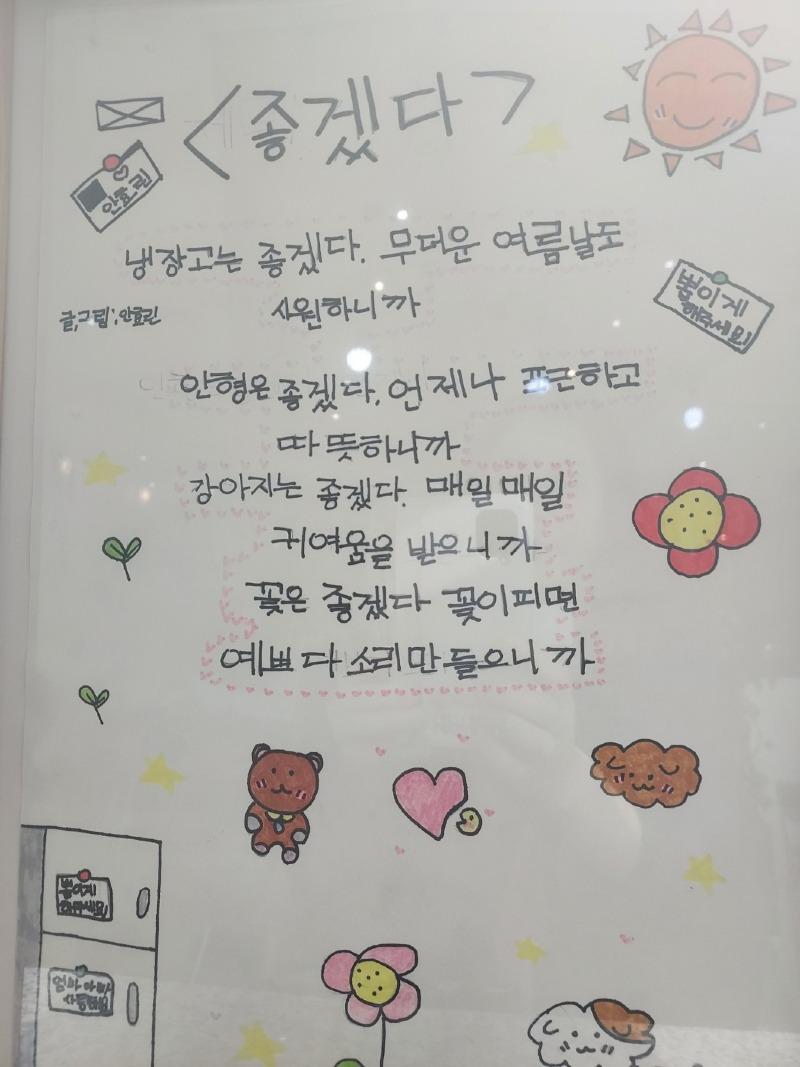 <좋겠다>
안효린
냉장고는 좋겠다. 무더운 여름날도
글,그림:안효린
시원하니까
뽑이게
해주세요!
안형은 좋겠다. 언제나 포근하고
따뜻하니까
강아지는 좋겠다. 매일매일
귀여움을 받으니까
꽃은 좋겠다 꽃이피면
예쁘다 소리만 들으니까
뽑이게
해주세요!
엄마 아빠
사랑해요